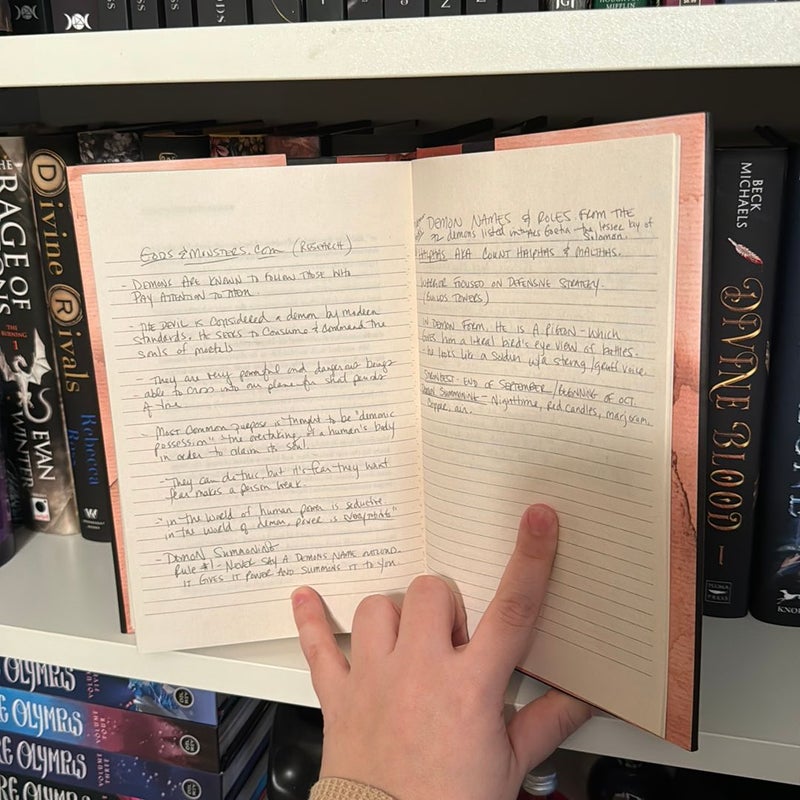 HOUGHTON
MIFFLIN
THE
RAGE OF
THE BURNING
EVAN
WINTER
Divine Rivals
Rebecca
GODS & MONSTERS.COM (RESEARCH)
- DEMONS ARE KNOWN TO FOLLOW THOSE WHO
PAY ATTENTION TO THEM.
- THE DEVIL IS CONSIDERED a demon by modern
standards. He seeks to consume & command the
souls of mortals
- They are very powerful and dangerous beings
able to cross into our plane for short periods
of time
- Most common purpose is thought to be "demonic
possession" - the overtaking of a human's body
in order to claim its soul.
- They can do this, but it's fear they want
fear makes a person weak.
- "in the world of human power is seductive
in the world of demon, power is
- DEMON SUMMONING
Rule #1 - NEVER SAY A DEMONS NAME OUTLOUD.
IT GIVES IT POWER AND SUMMONS IT TO YOU
DEMON NAMES & ROLES FROM THE
72 demons listed in the lesser key of
Solomon.
HALPHAS AKA COUNT HALPHAS & MALTHAS.
FOCUSED ON DEFENSIVE STRATEGY.
(BUILDS TOWERS)
IN DEMON FORM, HE IS A PIGEON - WHICH
GIVES him a literal bird's eye view of battles.
- he looks like a soldier w/a strong/gruff voice.
STRONGEST - END OF SEPTEMBER/BEGINNING OF OCT.
SUMMONING - Nighttime, red candles, marjoram,
copper, air.
BECK
MICHAELS
DIVINE BLOOD
LORE OLYMPUS
VOLUME
RE OLYMPUS
VOLUME FOUR
RE OLYMPUS
VOLUME THREE
RE OLYMPUS
VOLUME